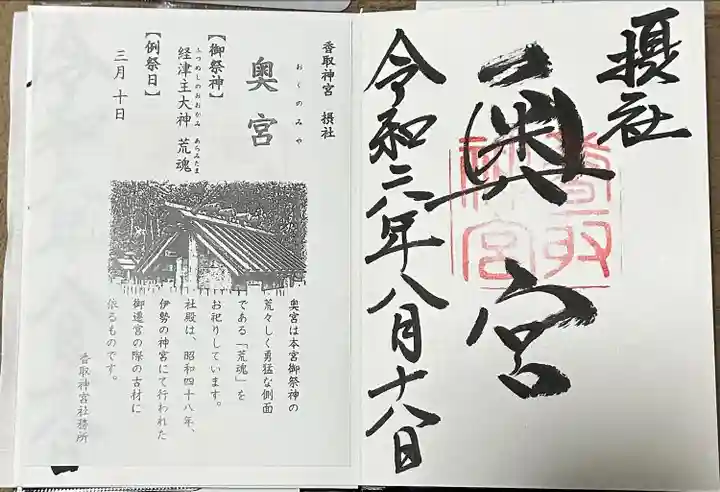 摂社
奥宮
香取神宮
令和六年八月十八日
香取神宮 摂社
おくのみや
奥宮
【御祭神】
ふつぬしのおおかみ あらみたま
経津主大神 荒魂
【例祭日】
三月 十日
奥宮は本宮御祭神の
荒々しく勇猛な側面
である「荒魂」を
お祀りしています。
社殿は、昭和四十八年、
伊勢の神宮にて行われた
御遷宮の際の古材に
依るものです。
香取神宮社務所